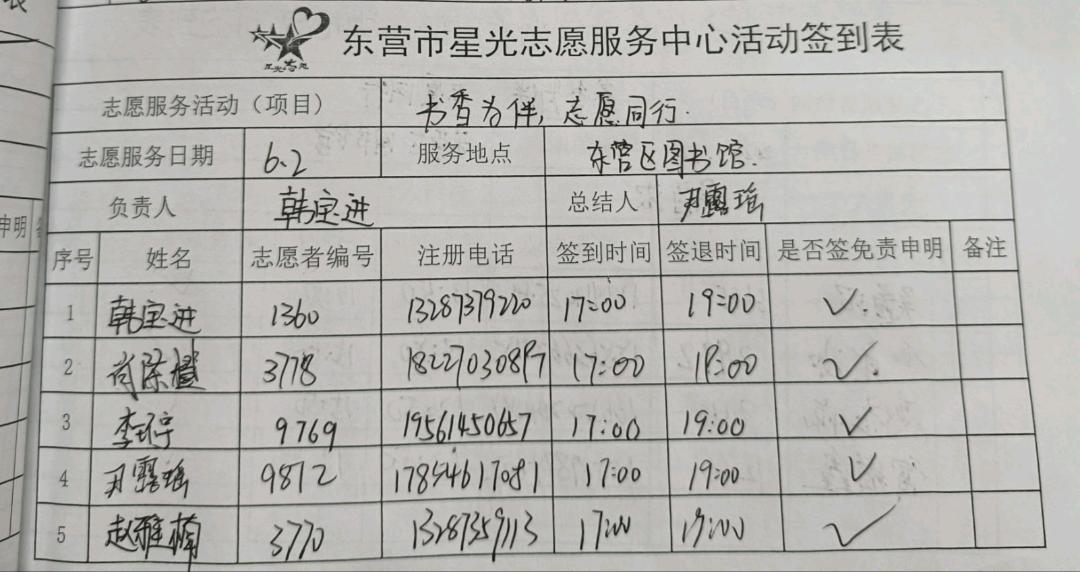 东营市星光志愿服务中心活动签到表
志愿服务活动（项目） 书香为伴，志愿同行.
志愿服务日期 6.2 服务地点 东营区图书馆.
负责人 韩宝进 总结人 尹露瑶
序号 姓名 志愿者编号 注册电话 签到时间 签退时间 是否签免责申明 备注
1 韩宝进 1360 13287379220 17:00 19:00 ✓.
2 3778 17:00 19:00 ✓.
3 9769 19561450657 17:00 19:00 ✓
4 尹露瑶 9872 17854617081 17:00 19:00 ✓.
5 赵雅楠 3770 13287359113 17:00 19:00 ✓
申明